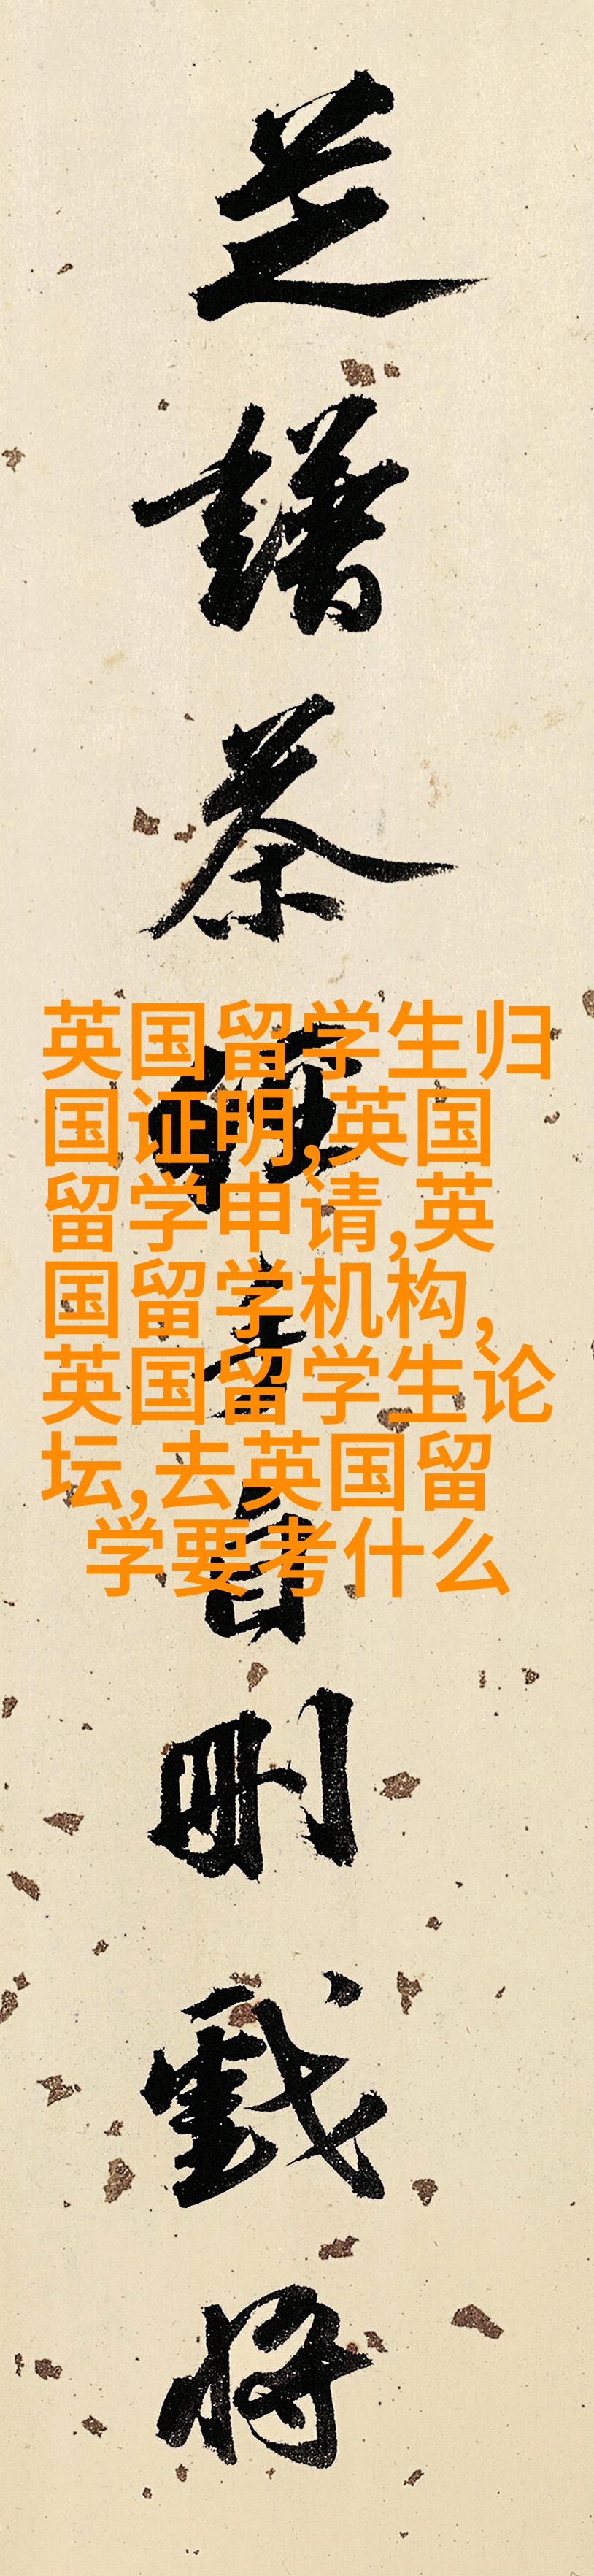 芝
譜
茶
英国留学生归
国证明,英国
留学申请,英
国留学机构,
英国留学生论
坛,去英国留
学要考什么
自
刪
戲
將